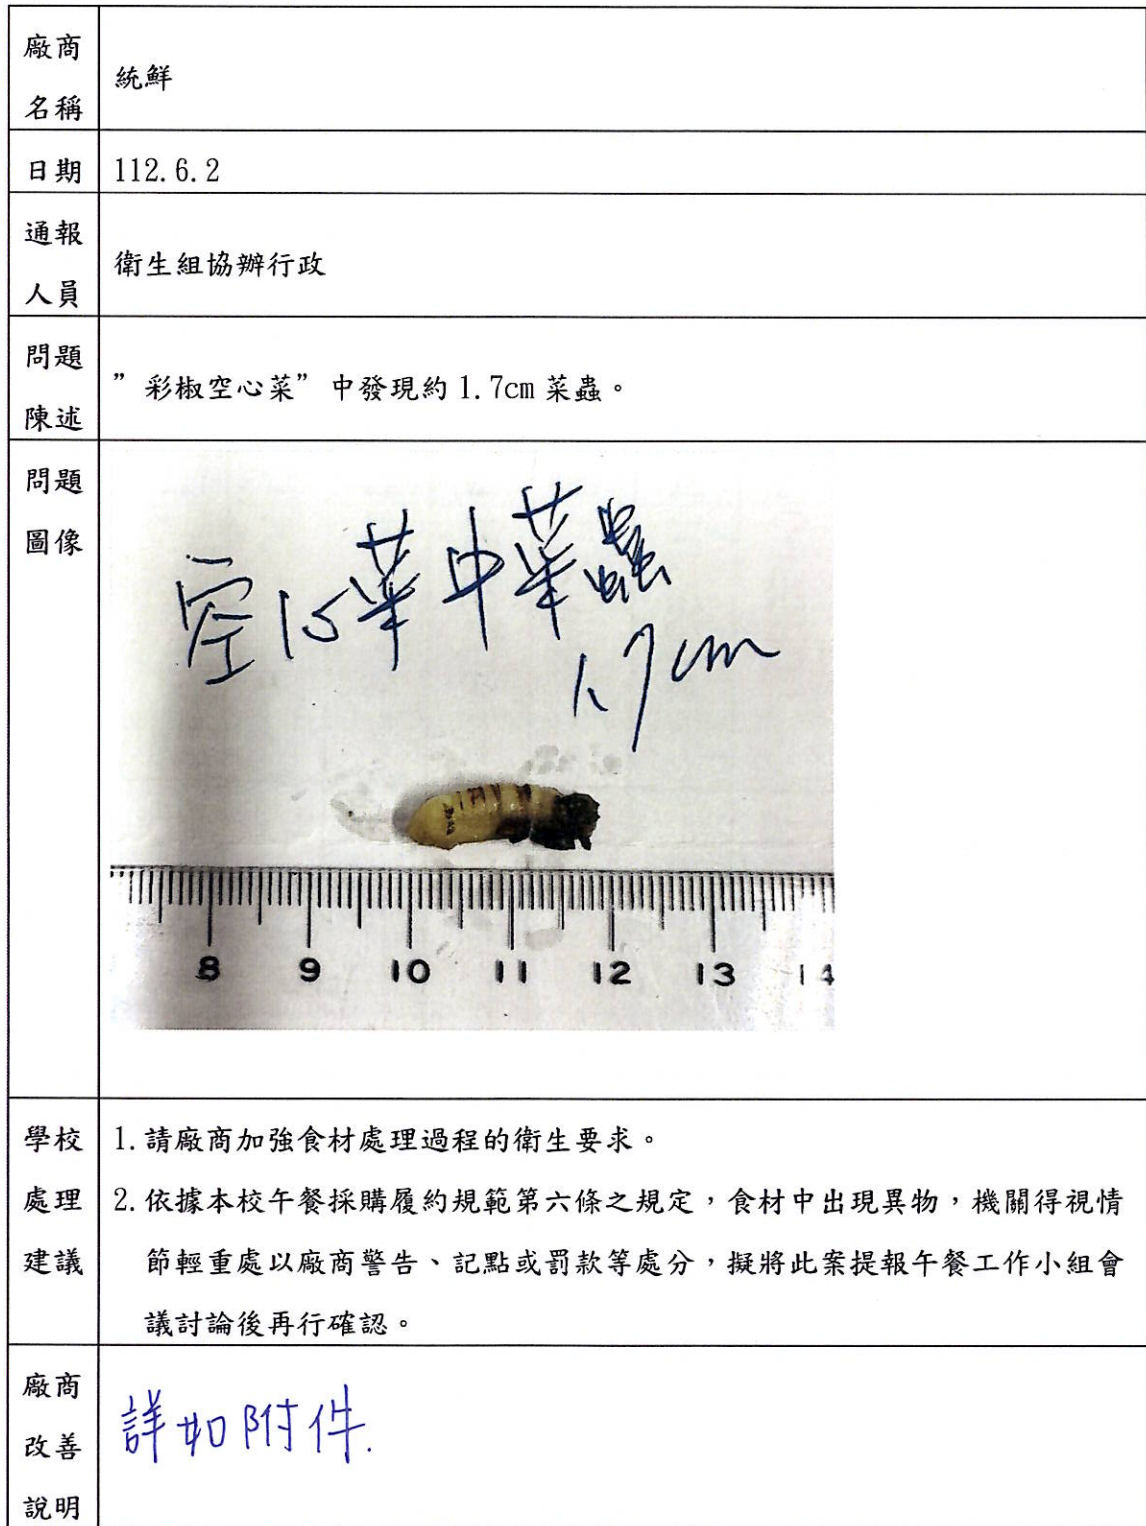 廠商
名稱
統鮮
日期
112.6.2
通報
人員
衛生組協辦行政
問題
陳述
”彩椒空心菜”中發現約 1.7cm 菜蟲。
問題
圖像
空心菜中菜蟲
1.7cm
8 9 10 11 12 13 14
學校
處理
建議
1.請廠商加強食材處理過程的衛生要求。
2.依據本校午餐採購履約規範第六條之規定，食材中出現異物，機關得視情
節輕重處以廠商警告、記點或罰款等處分，擬將此案提報午餐工作小組會
議討論後再行確認。
廠商
改善
說明
詳如附件.